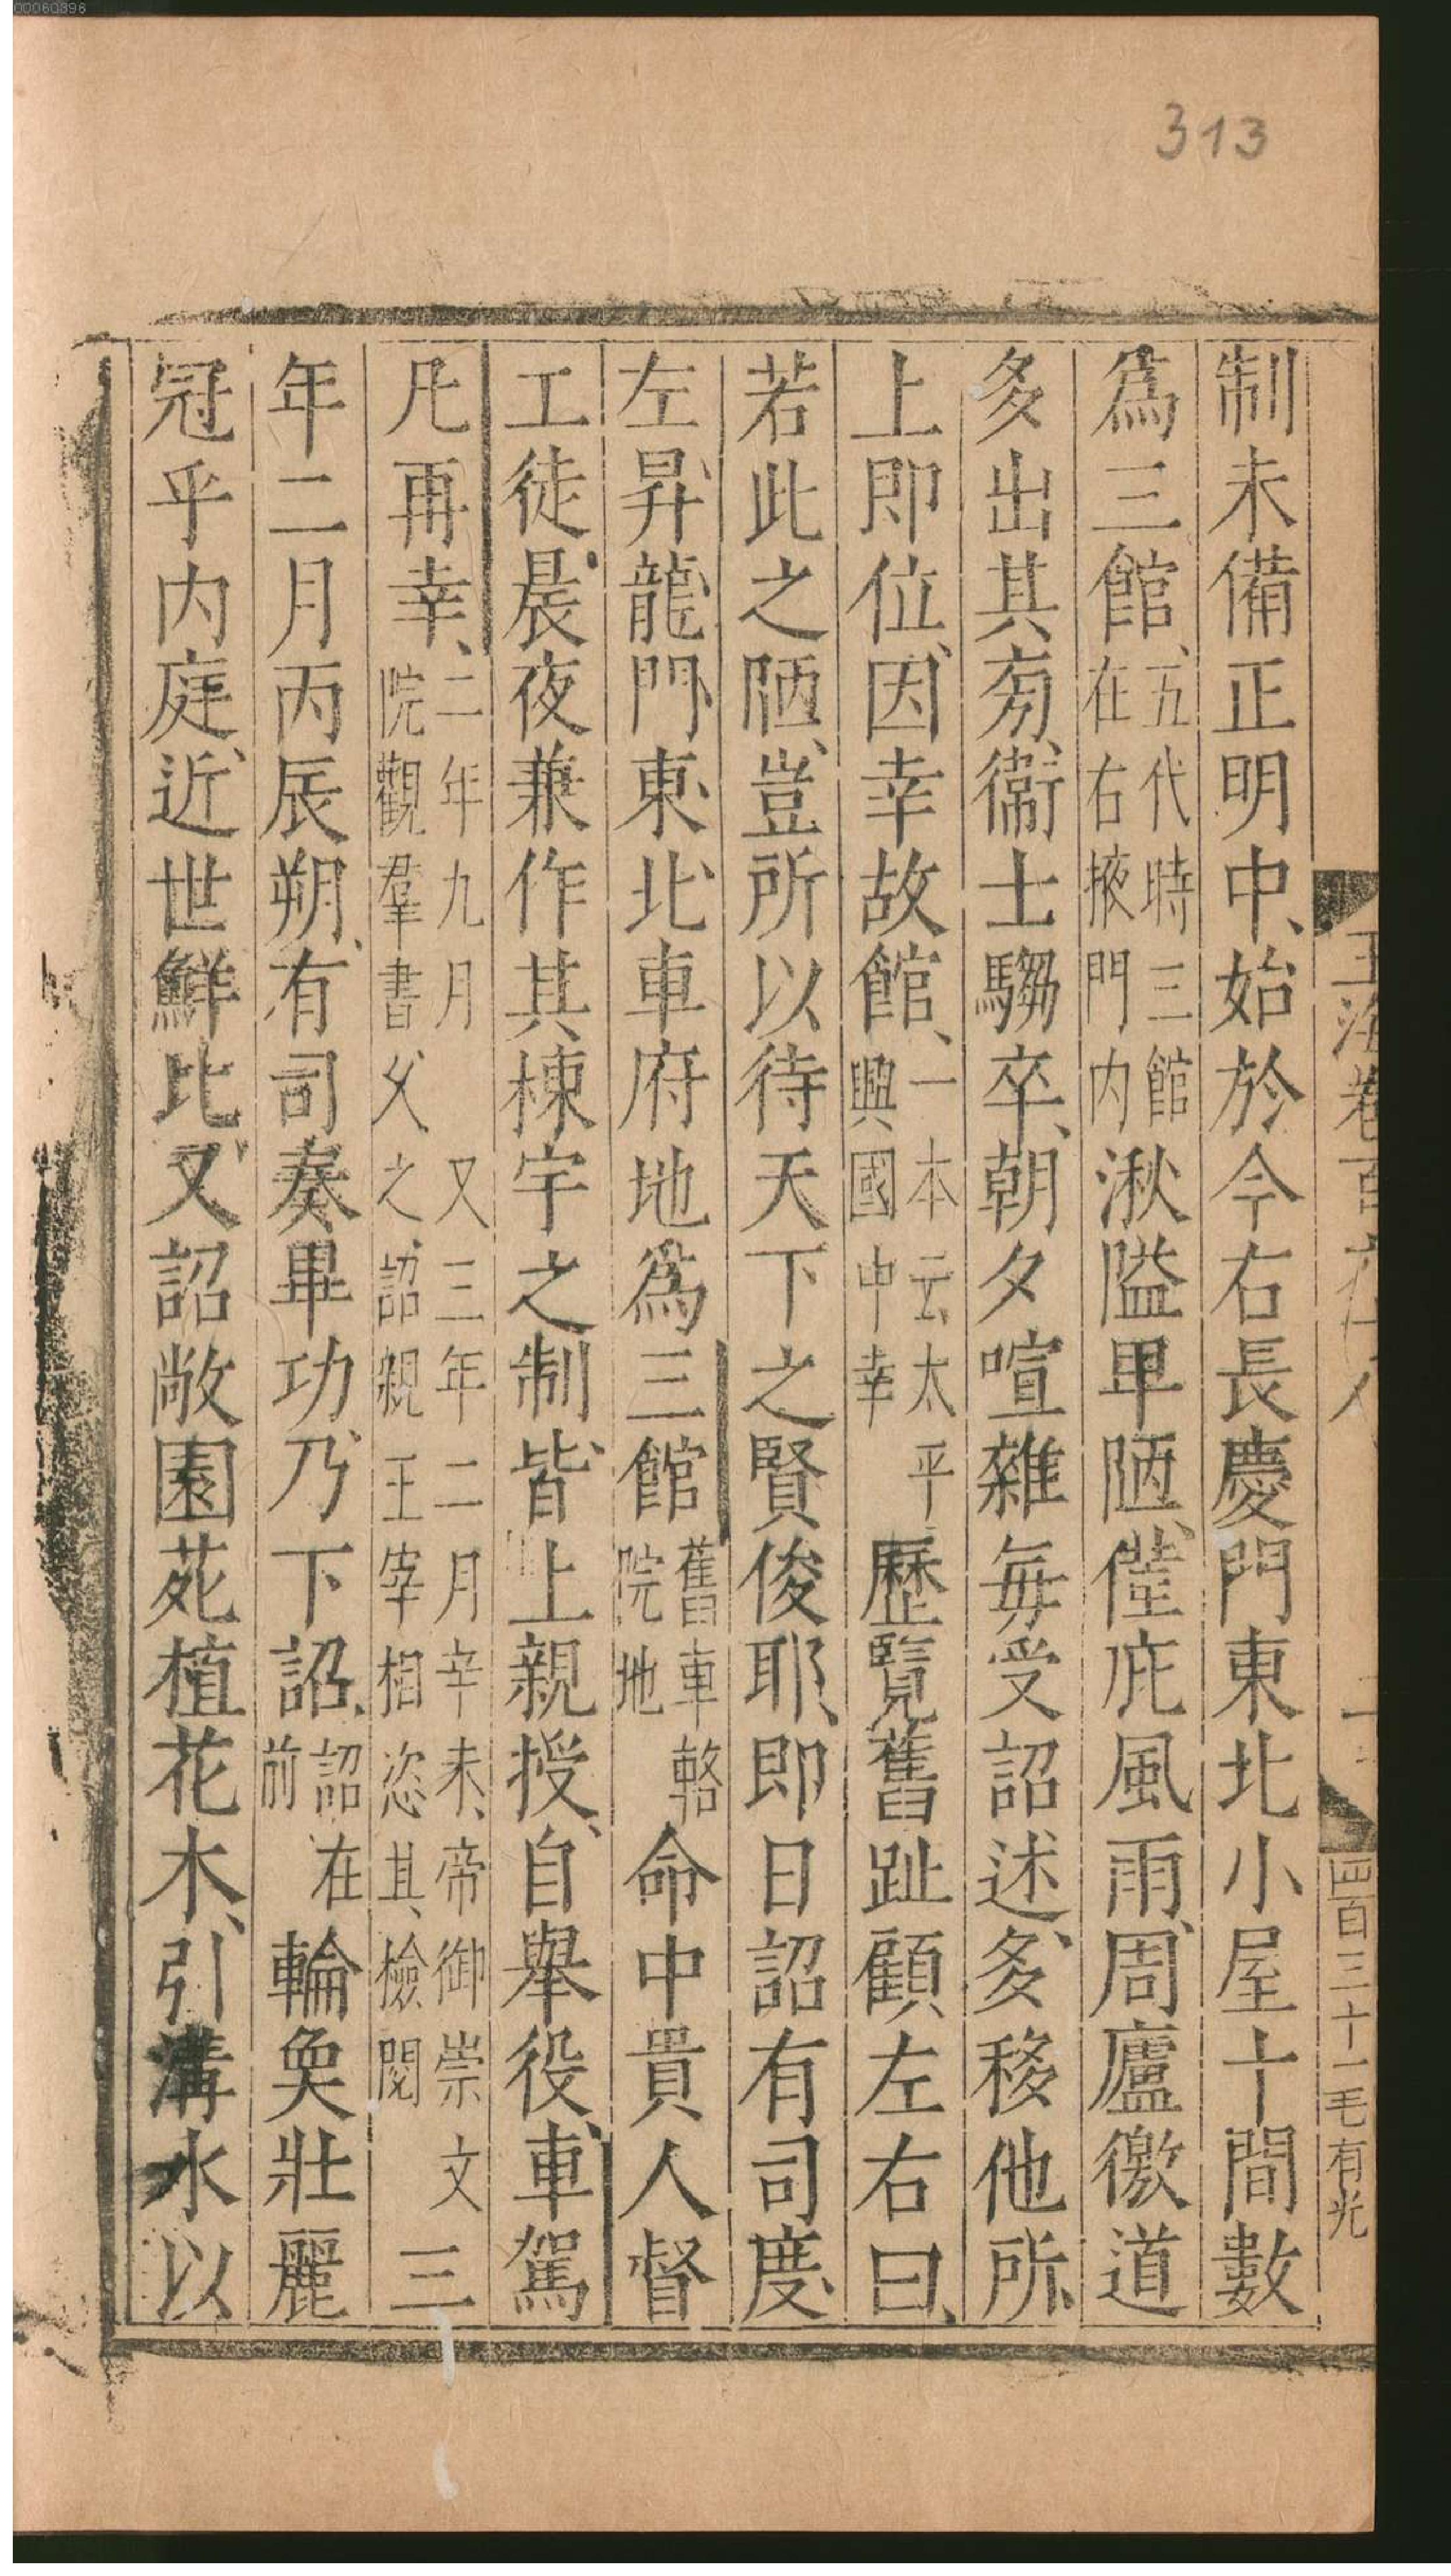 00060896
313
玉海卷百六十八
四百三十一毛有光
制未備正明中、始於今右長慶門東北小屋十間數
爲三館、五代時三館在右掖門內湫隘卑陋、僅庇風雨、周廬徼道
多出其旁、衞士騶卒、朝夕喧雜每受詔述、多移他所、
上即位、因幸故館、一本云、太平興國中幸歷覽舊趾顧左右曰、
若此之陋、豈所以待天下之賢俊耶、即日詔有司度、
左昇龍門東北車府地爲三館舊車輅院地命中貴人督
工徒晨夜兼作其棟宇之制、皆上親授、自舉役、車駕
凡再幸、二年九月又三年二月辛未、帝御崇文院觀羣書乆之、詔親王宰相恣其檢閱三
年二月丙辰朔、有司奏畢功、乃下詔、詔在前輪奐壯麗
冠乎内庭、近世鮮比又詔敞園苑植花木、引溝水以